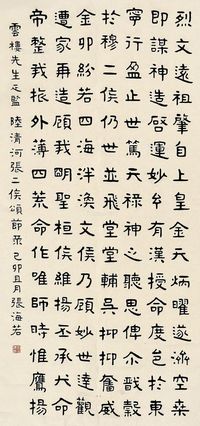 烈文遠祖肇自上皇金天炳曜遂濟空桑
即謀神造啓運妙有漢授命慶邑於東
寧行盈止世篤天祿神之聽思俾尒戩穀
於穆二侯仍世並登堂輔吳抑抑奮威
金卯紛若四海泮渙文侯乃顧妙世達觀
遭家再造顧我明聖桓侯維揚丕承大命
帝整我旅外薄四荒命作唯師時惟鷹揚
雲樓先生正監 陸清河張二侯頌節录 己卯且月張海若